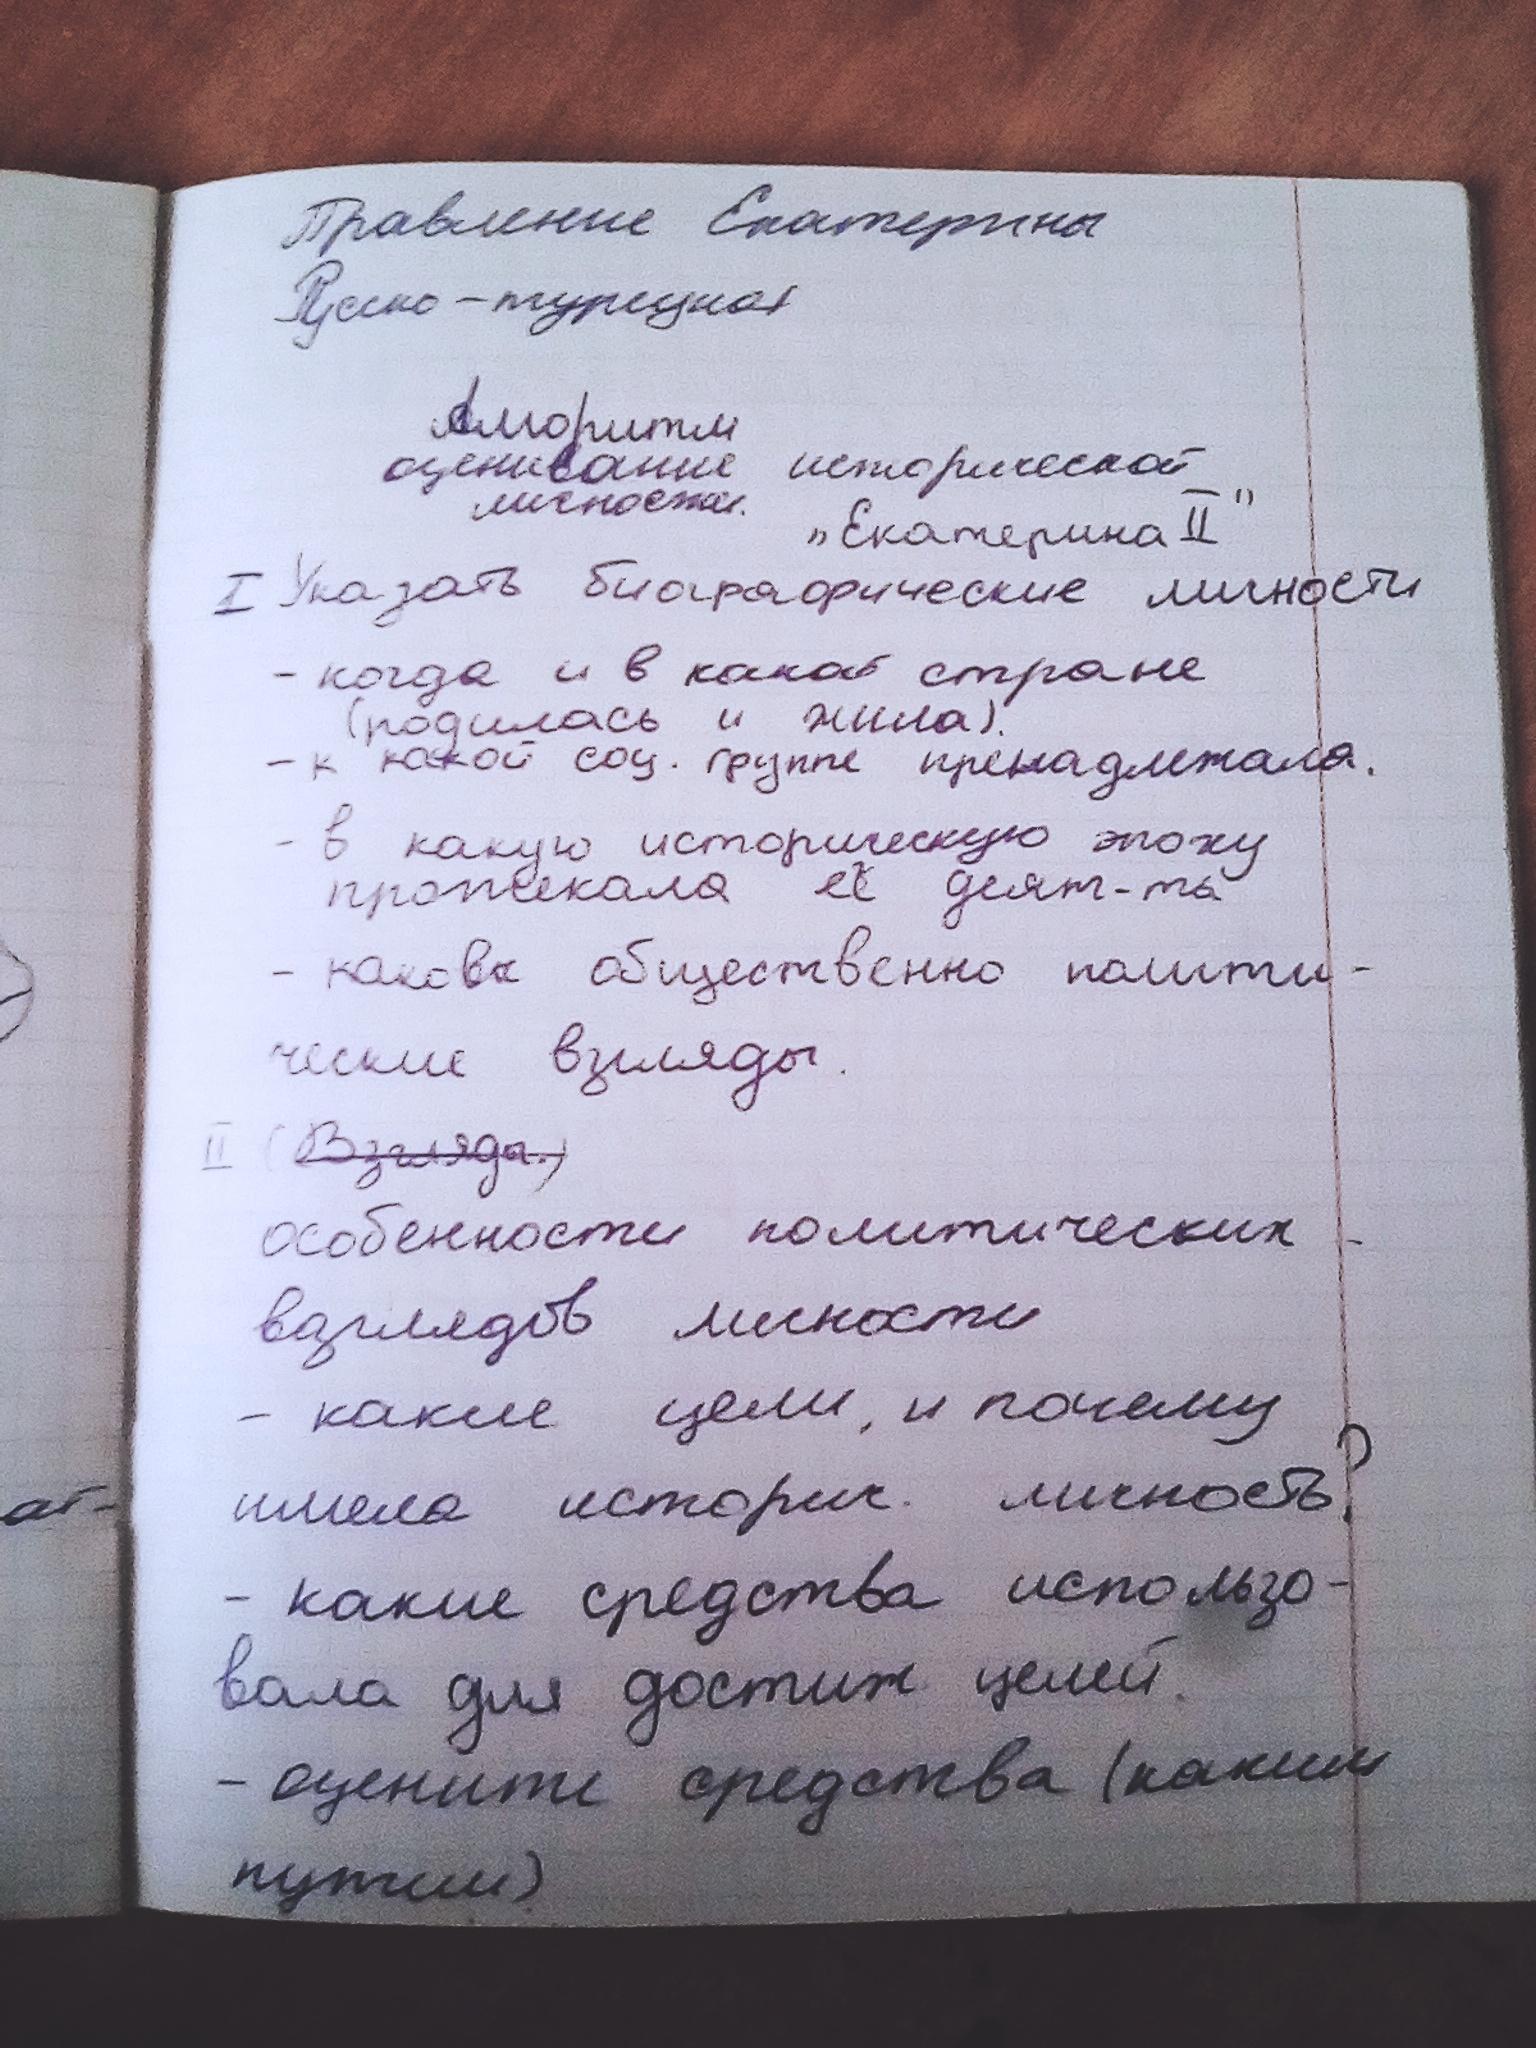 Правление Екатерины
Русско-турецкая
Алгоритм
оценивание исторической
личности.
„Екатерина II"
I Указать биографические личности
- когда и в какой стране
(родилась и жила).
- к какой соц. группе пренадлежала.
- в какую историческую эпоху
протекала её деят-ть
- каковы общественно полити-
ческие взгляды.
II (Взгляды.)
особенности политических
взглядов личности
- какие цели, и почему
имела историч. личность?
- какие средства использо-
вала для достиж целей.
- оцените средства (каким
путем)
ат-